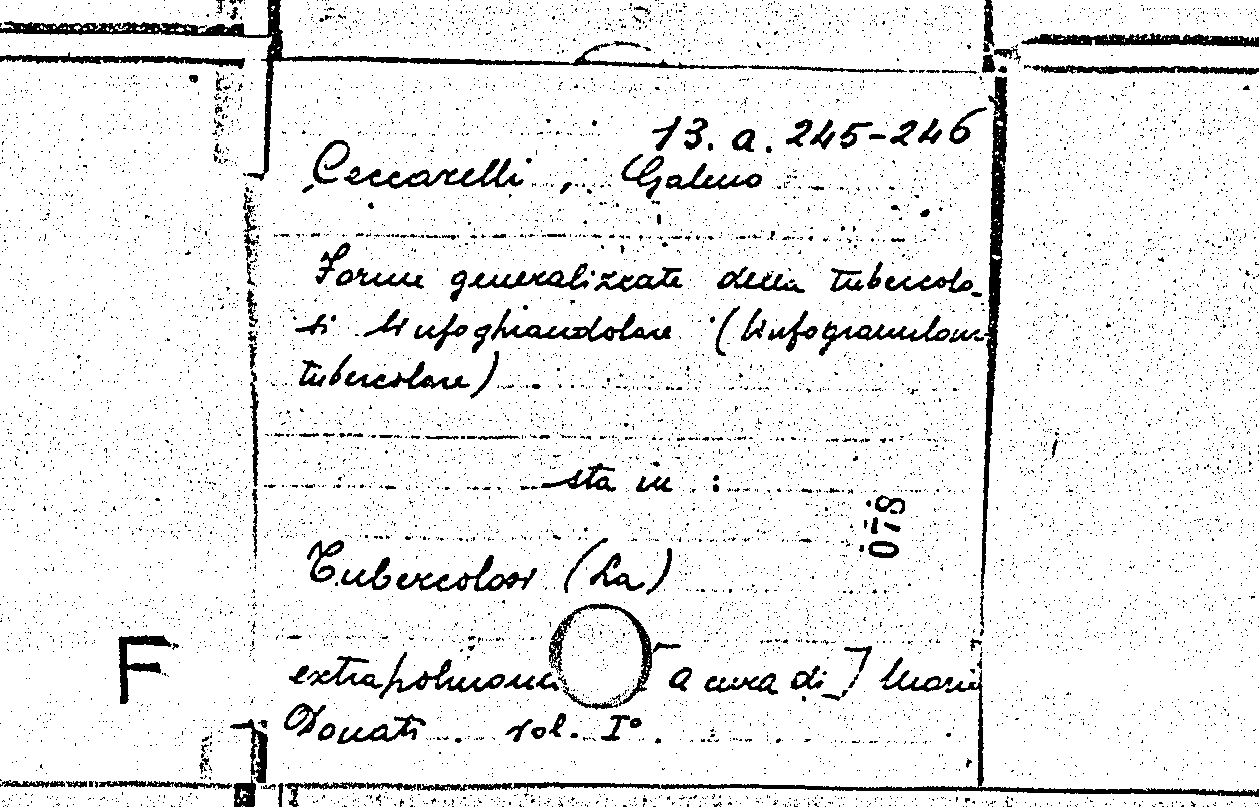 13. a. 245-246
Ceccarelli, Galeno
Forme generalizzate della tubercolo-
si linfoghiandolare (linfogranuloma
tubercolare)
sta in :
078
Tubercolosi (La)
extrapolmonare [a cura di] Mario
F
Donati. vol. I°.